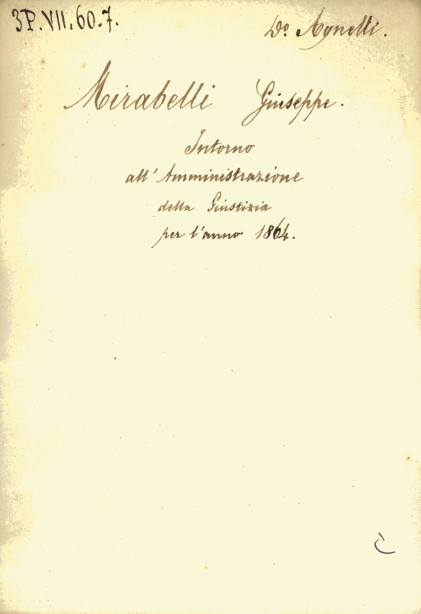 3P.VII.60.7.
Do Agnelli.
Mirabelli Giuseppe.
Intorno
all'Amministrazione
della Giustizia
per l'anno 1864.